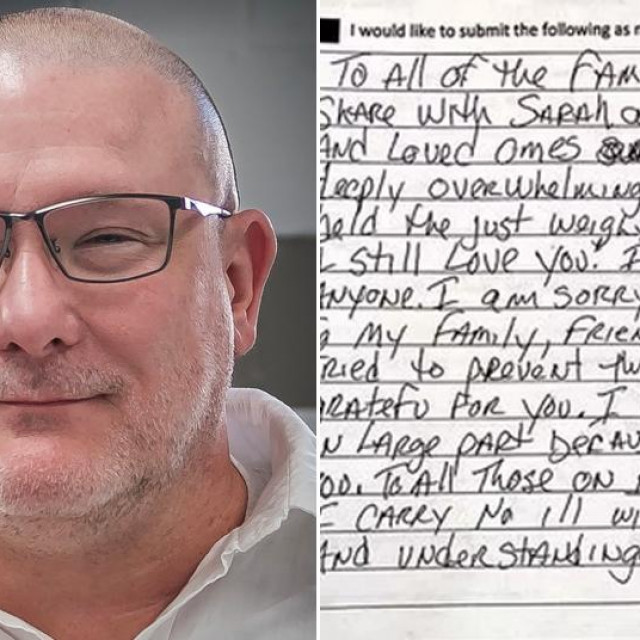 I would like to submit the following as
TO All of the FAM
SHARE With SARAH
AND Loved Ones
deeply overwhelming
held the just weigh
I still Love you. I
ANYONE. I am SORRY
MY FAMILY, FRIEN
RIED to prevent
RATEFU FOR YOU. I
N LARGE part BECAU
OO. TO All Those ON
I CARRY No ill wi
AND UNDERSTANDING